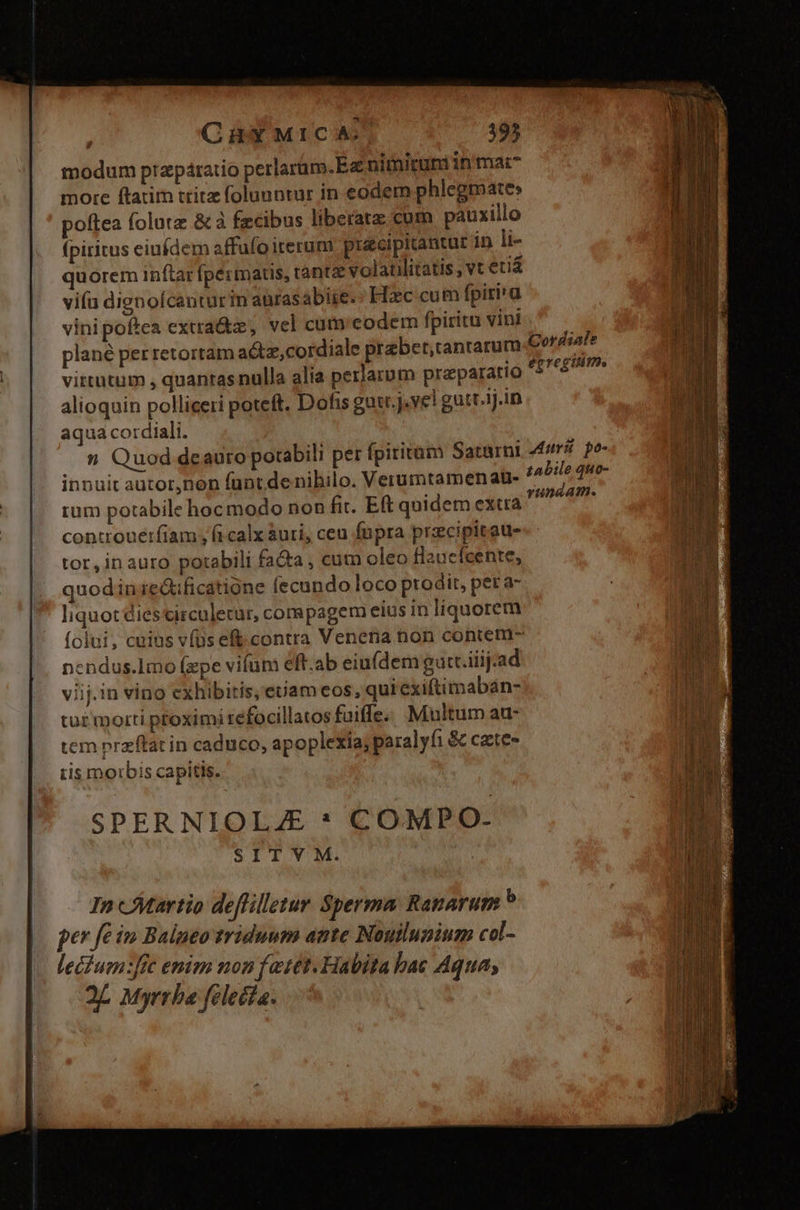 CHYMICA. 393
modum præpáratio perlarúm. Eæ nimirum in mar-
more ſtatim tritæ ſoluuntur in eodem phlegmate,
poſtea ſolutæ & à fæcibus liberatæ cum pauxillo
ſpiritus eiuſdem affuſo iterum præcipitantur in li-
quorem inſtar ſpermatis, tantæ volatilitatis, vt etiã
viſu dignoſcantur in auras abiſſe. Hæc cum ſpiritu
vini poſtea extractæ, vel cum eodem ſpiritu vini
plane per retortam actæ, cordiale præbet, tantarum
virtutum, quantas nulla alia perlarum præparatio
alioquin polliceri poteſt. Doſis gutt. j. vel gutt. ij. in
aqua cordiali.
Cordiale
egregium.
n Quod de auro potabili per ſpiritum Saturni
innuit autor, non ſunt de nihilo. Verumtamen au-
rum potabile hoc modo non fit. Eſt quidem extra
controuerſiam, ſi calx auri, ceu ſupra præcipitau-
tor, in auro potabili facta, cum oleo flaueſcente,
quod in rectificatione ſecundo loco prodit, per a-
liquot dies circuletur, compagem eius in liquorem
ſolui, cuius vſus eſt contra Venena non contem-
nendus. Imo ſæpe viſum eſt. ab eiuſdem gutt. iiij. ad
viij. in vino exhibitis, etiam eos, qui exiſtimaban-
tur morti proximi refocillatos fuiſſe. Multum au-
tem præſtat in caduco, apoplexia, paralyſi & cæte-
ris morbis capitis.
Aurũ po-
tabile quo-
rundam.
SPERNIOLÆ * COMPO-
SITVM.
In Martio deſtilletur Sperma Ranarum b
per ſe in Balneo triduum ante Nouilunium col-
lectum: ſic enim non fœtet. Habita hac Aqua,
♃. Myrrhæ ſelectæ.